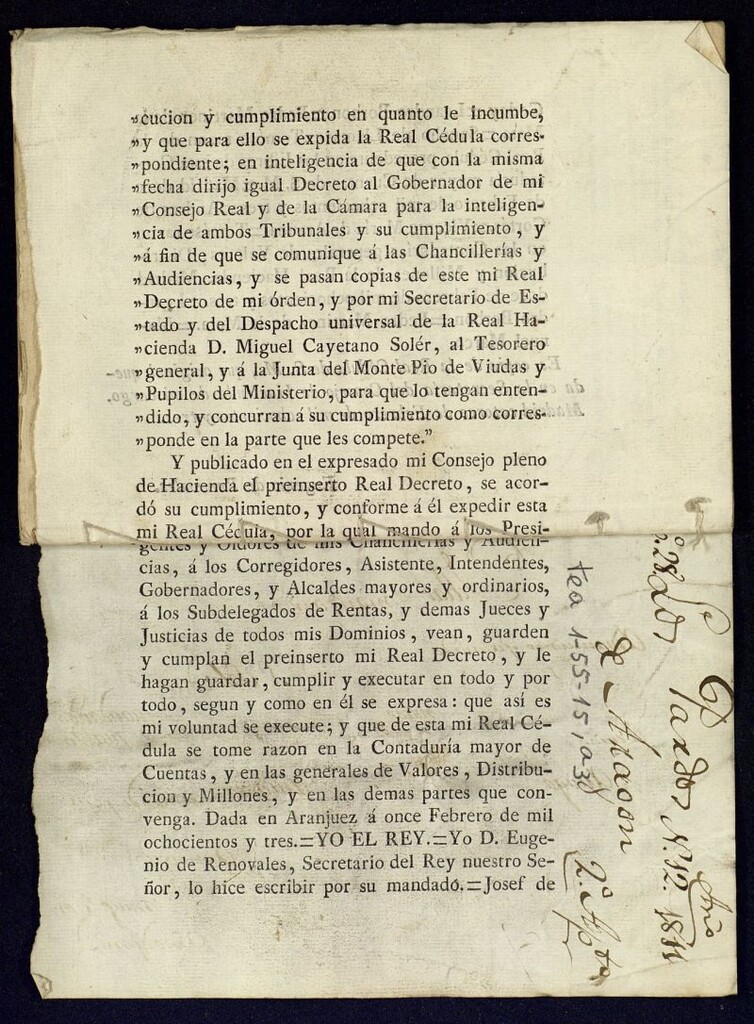 „cucion y cumplimiento en quanto le incumbe,
„y que para ello se expida la Real Cédula corres-
„pondiente; en inteligencia de que con la misma
„fecha dirijo igual Decreto al Gobernador de mi
„Consejo Real y de la Cámara para la inteligen-
„cia de ambos Tribunales y su cumplimiento, y
„á fin de que se comunique á las Chancillerías y
„Audiencias, y se pasan copias de este mi Real
„Decreto de mi órden, y por mi Secretario de Es-
„tado y del Despacho universal de la Real Ha-
„cienda D. Miguel Cayetano Solér, al Tesorero
„general, y á la Junta del Monte Pio de Viudas y
„Pupilos del Ministerio, para que lo tengan enten-
„dido, y concurran á su cumplimiento como corres-
„ponde en la parte que les compete.”
Y publicado en el expresado mi Consejo pleno
de Hacienda el preinserto Real Decreto, se acor-
dó su cumplimiento, y conforme á él expedir esta
mi Real Cédula, por la qual mando á los Presi-
gentes y Oidores de mis Chancillerías y Audien-
cias, á los Corregidores, Asistente, Intendentes,
Gobernadores, y Alcaldes mayores y ordinarios,
á los Subdelegados de Rentas, y demas Jueces y
Justicias de todos mis Dominios, vean, guarden
y cumplan el preinserto mi Real Decreto, y le
hagan guardar, cumplir y executar en todo y por
todo, segun y como en él se expresa: que así es
mi voluntad se execute; y que de esta mi Real Cé-
dula se tome razon en la Contaduría mayor de
Cuentas, y en las generales de Valores, Distribu-
cion y Millones, y en las demas partes que con-
venga. Dada en Aranjuez á once Febrero de mil
ochocientos y tres.=YO EL REY.=Yo D. Euge-
nio de Renovales, Secretario del Rey nuestro Se-
ñor, lo hice escribir por su mandado.=Josef de
tea 1-55-15, a38
de Aragon
2.º Apte
N.12.
Año
1811